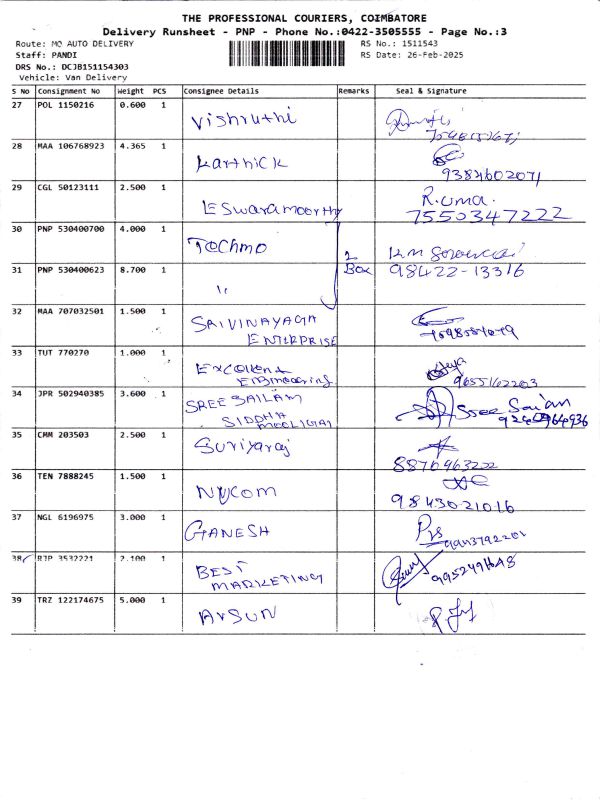 THE PROFESSIONAL COURIERS, COIMBATORE
Delivery Runsheet - PNP - Phone No.:0422-3505555 - Page No.:3
Route: MO AUTO DELIVERY RS No.: 1511543
Staff: PANDI RS Date: 26-Feb-2025
DRS No.: DCJB151154303
Vehicle: Van Delivery
S No Consignment No Weight PCS Consignee Details Remarks Seal & Signature
27 POL 1150216 0.600 1
Vishruthi
28 MAA 106768923 4.365 1
Karthick
9384602071
29 CGL 50123111 2.500 1
Eswaramoorthy R.uma.
7550347222
30 PNP 530400700 4.000 1
Tochmo 2
Box
31 PNP 530400623 8.700 1 98422-13316
"
32 MAA 707032501 1.500 1
SRIVINAYAGA
ENTERPRISE
33 TUT 770270 1.000 1
Excellent
Engineering
34 JPR 502940385 3.600 1
SREE SAILAM
SIDDHA Sree Sai an
35 CMM 203503 2.500 1
Suriyaraj
36 TEN 7888245 1.500 1
Nycom
9843021016
37 NGL 6196975 3.000 1
GANESH
38 RJP 3532221 2.100 1
BEST
MARKETING
39 TRZ 122174675 5.000 1
Arsun